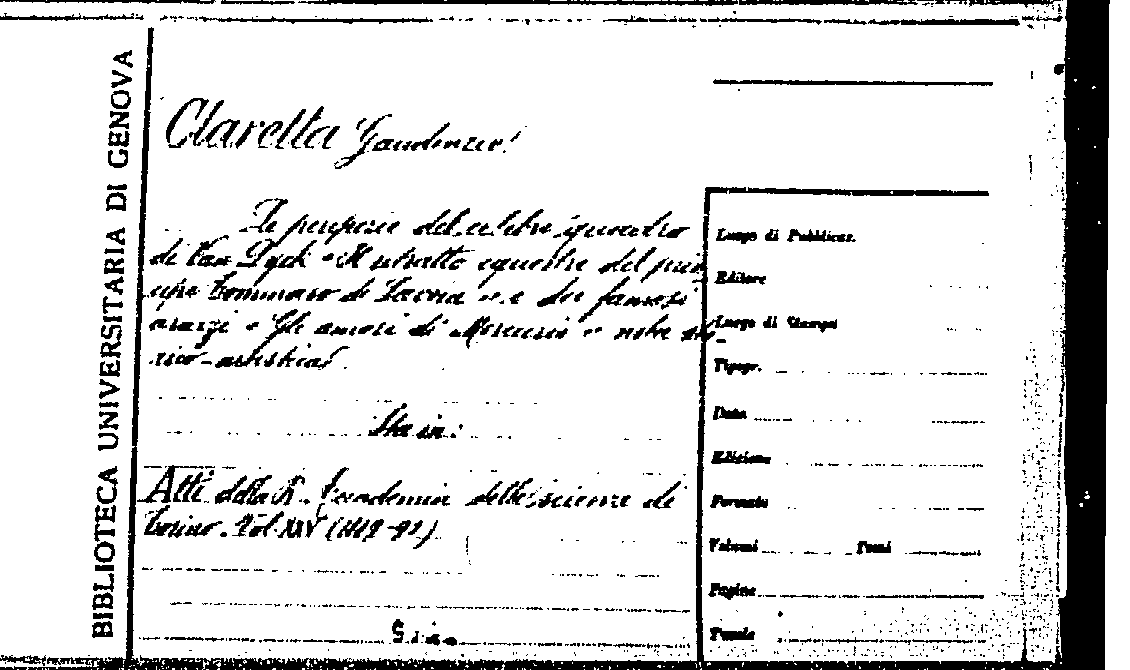 BIBLIOTECA UNIVERSITARIA DI GENOVA
Claretta Gaudenzio
Le peripezie del celebre quadro
di Van Dyck "Il ritratto equestre del prin
cipe Tommaso di Savoia" e dei famosi
arazzi "Gli amori di Mercurio" nota sto-
rico-artistica
Sta in:
Atti della R. Accademia delle scienze di
Torino. Vol. XXV
Luogo di Pubblicaz.
Editore
Luogo di Stampa
Tipogr.
Data
Edizione
Formato
Volumi Tomi
Pagine
Tavole